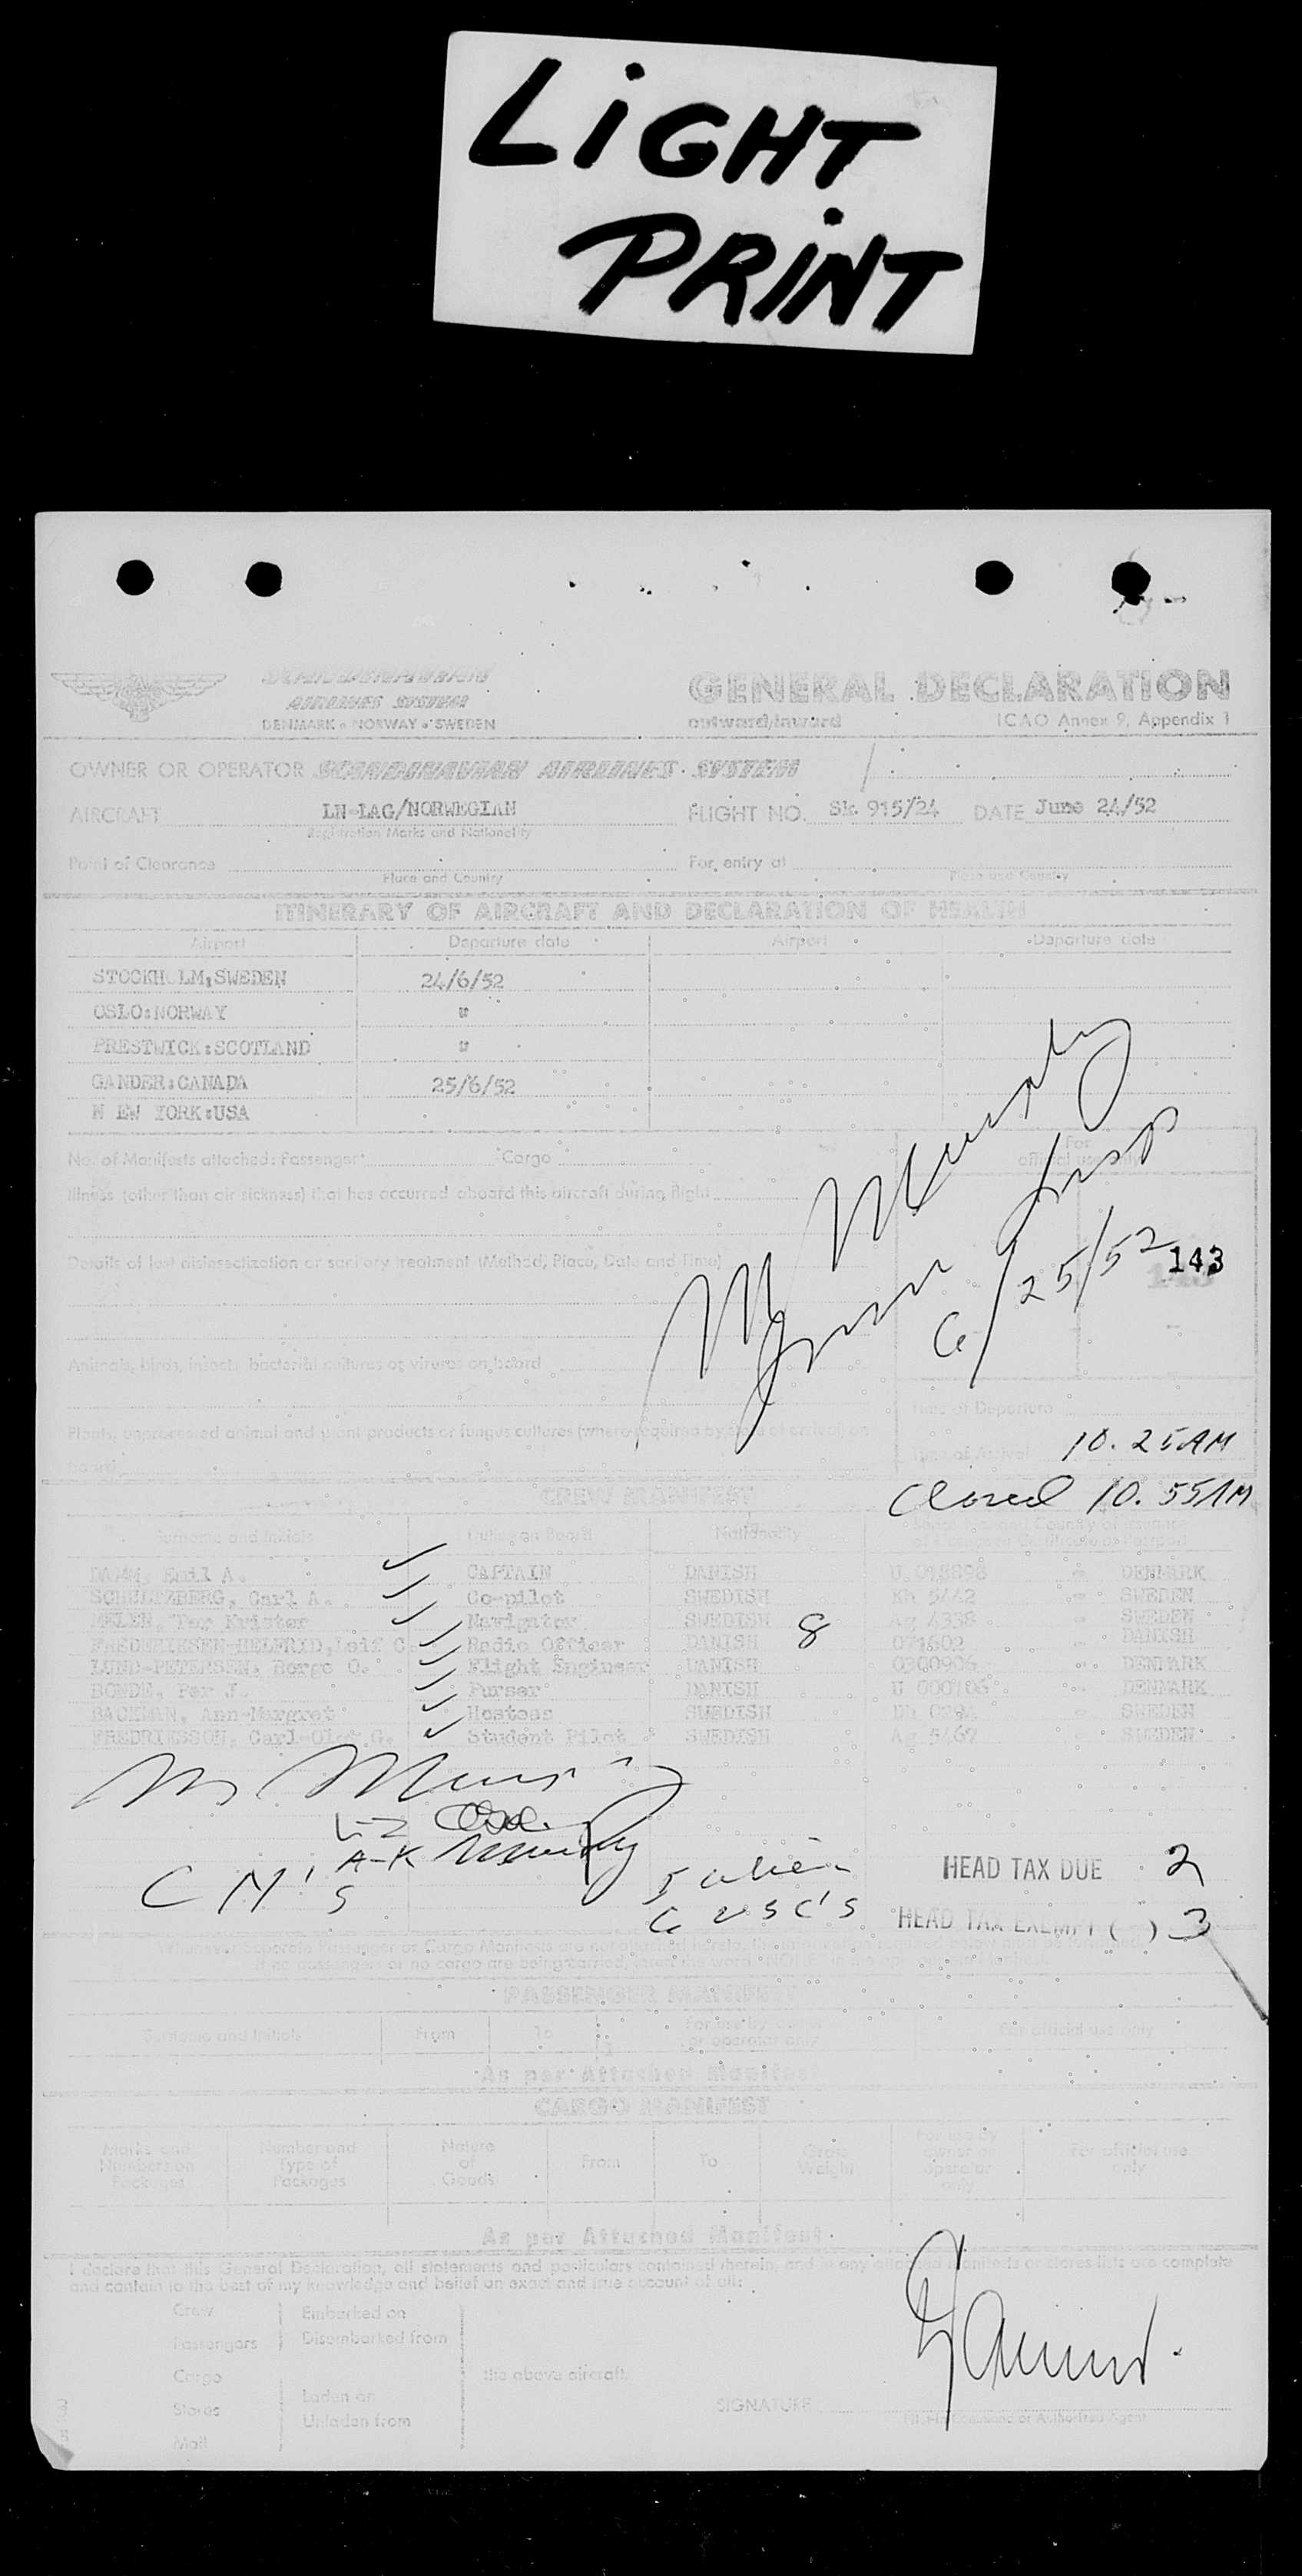 LiGHT
PRiNT
SCANDINAVIAN
AIRLINES SYSTEM
DENMARK • NORWAY • SWEDEN
GENERAL DECLARATION
outward/inward
ICAO Annex 9, Appendix 1
OWNER OR OPERATOR SCANDINAVIAN AIRLINES SYSTEM
AIRCRAFT LN-LAG/NORWEGIAN FLIGHT NO. SK 915/24 DATE June 24/52
Registration Marks and Nationality
Point of Clearance For entry at
Place and Country Place and Country
ITINERARY OF AIRCRAFT AND DECLARATION OF HEALTH
Airport Departure date Airport Departure date
STOCKH LM:SWEDEN 24/6/52
OSLO:NORWAY "
PRESTWICK:SCOTLAND "
GANDER:CANADA 25/6/52
N EW YORK:USA
No. of Manifests attached: Passenger Cargo
For
official use only
Illness (other than air sickness) that has occurred aboard this aircraft during flight
Details of last disinsectization or sanitary treatment (Method, Place, Date and Time)
6/25/52
143
Animals, birds, insects, bacterial cultures or viruses on board
Time of Departure
Plants, unprocessed animal and plant products or fungus cultures (where required by state of arrival) on
board
Time of Arrival 10.25AM
Closed 10.55AM
CREW MANIFEST
Surname and Initials Duties on Board Nationality
Emil A. CAPTAIN DANISH DENMARK
SCHULTZBERG, Carl A. Co-pilot SWEDISH 5442 SWEDEN
Per Krister Navigator SWEDISH Ag 4338 SWEDEN
FREDERIKSEN-HELFRID, Leif C. Radio Officer DANISH 8 071602 DANISH
LUND-PETERSEN, Borge O. Flight Engineer DANISH DENMARK
BONDE, Per J. Purser DANISH DENMARK
BACKMAN, Ann-Margret Hostess SWEDISH SWEDEN
FREDRIKSSON, Carl-Olof G. Student Pilot SWEDISH Ag 5467 SWEDEN
L-Z
A-K
CM's
5 alien
6 USC's
HEAD TAX DUE 2
HEAD TAX EXEMPT ( ) 3
PASSENGER MANIFEST
Surname and Initials From To For use by owner or operator only For official use only
As per Attached Manifest
CARGO MANIFEST
Marks and Numbers on Packages Number and Type of Packages Nature of Goods From To Gross Weight For use by owner or operator only For official use only
As per Attached Manifest
I declare that this General Declaration, all statements and particulars contained therein, and in any attached manifests or stores lists are complete
and contain to the best of my knowledge and belief an exact and true account of all:
Crew Embarked on
Passengers Disembarked from
Cargo the above aircraft.
Stores Laden on
Unladen from
Mail
SIGNATURE
Pilot-in-Command or Authorized Agent